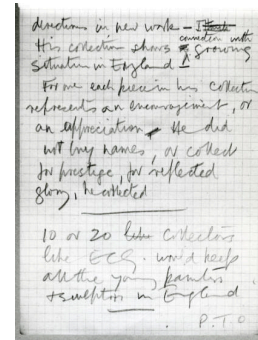 directions in new work –
connection with
His collection shows growing
situation in England –
For me each piece in his collection
represents an encouragement, or
an appreciation He did
not buy names, or collect
for prestige, for reflected
glory, he collected
10 or 20 like collectors
like ECG. would keep
all the young painters
& sculptors in England
P.T.O